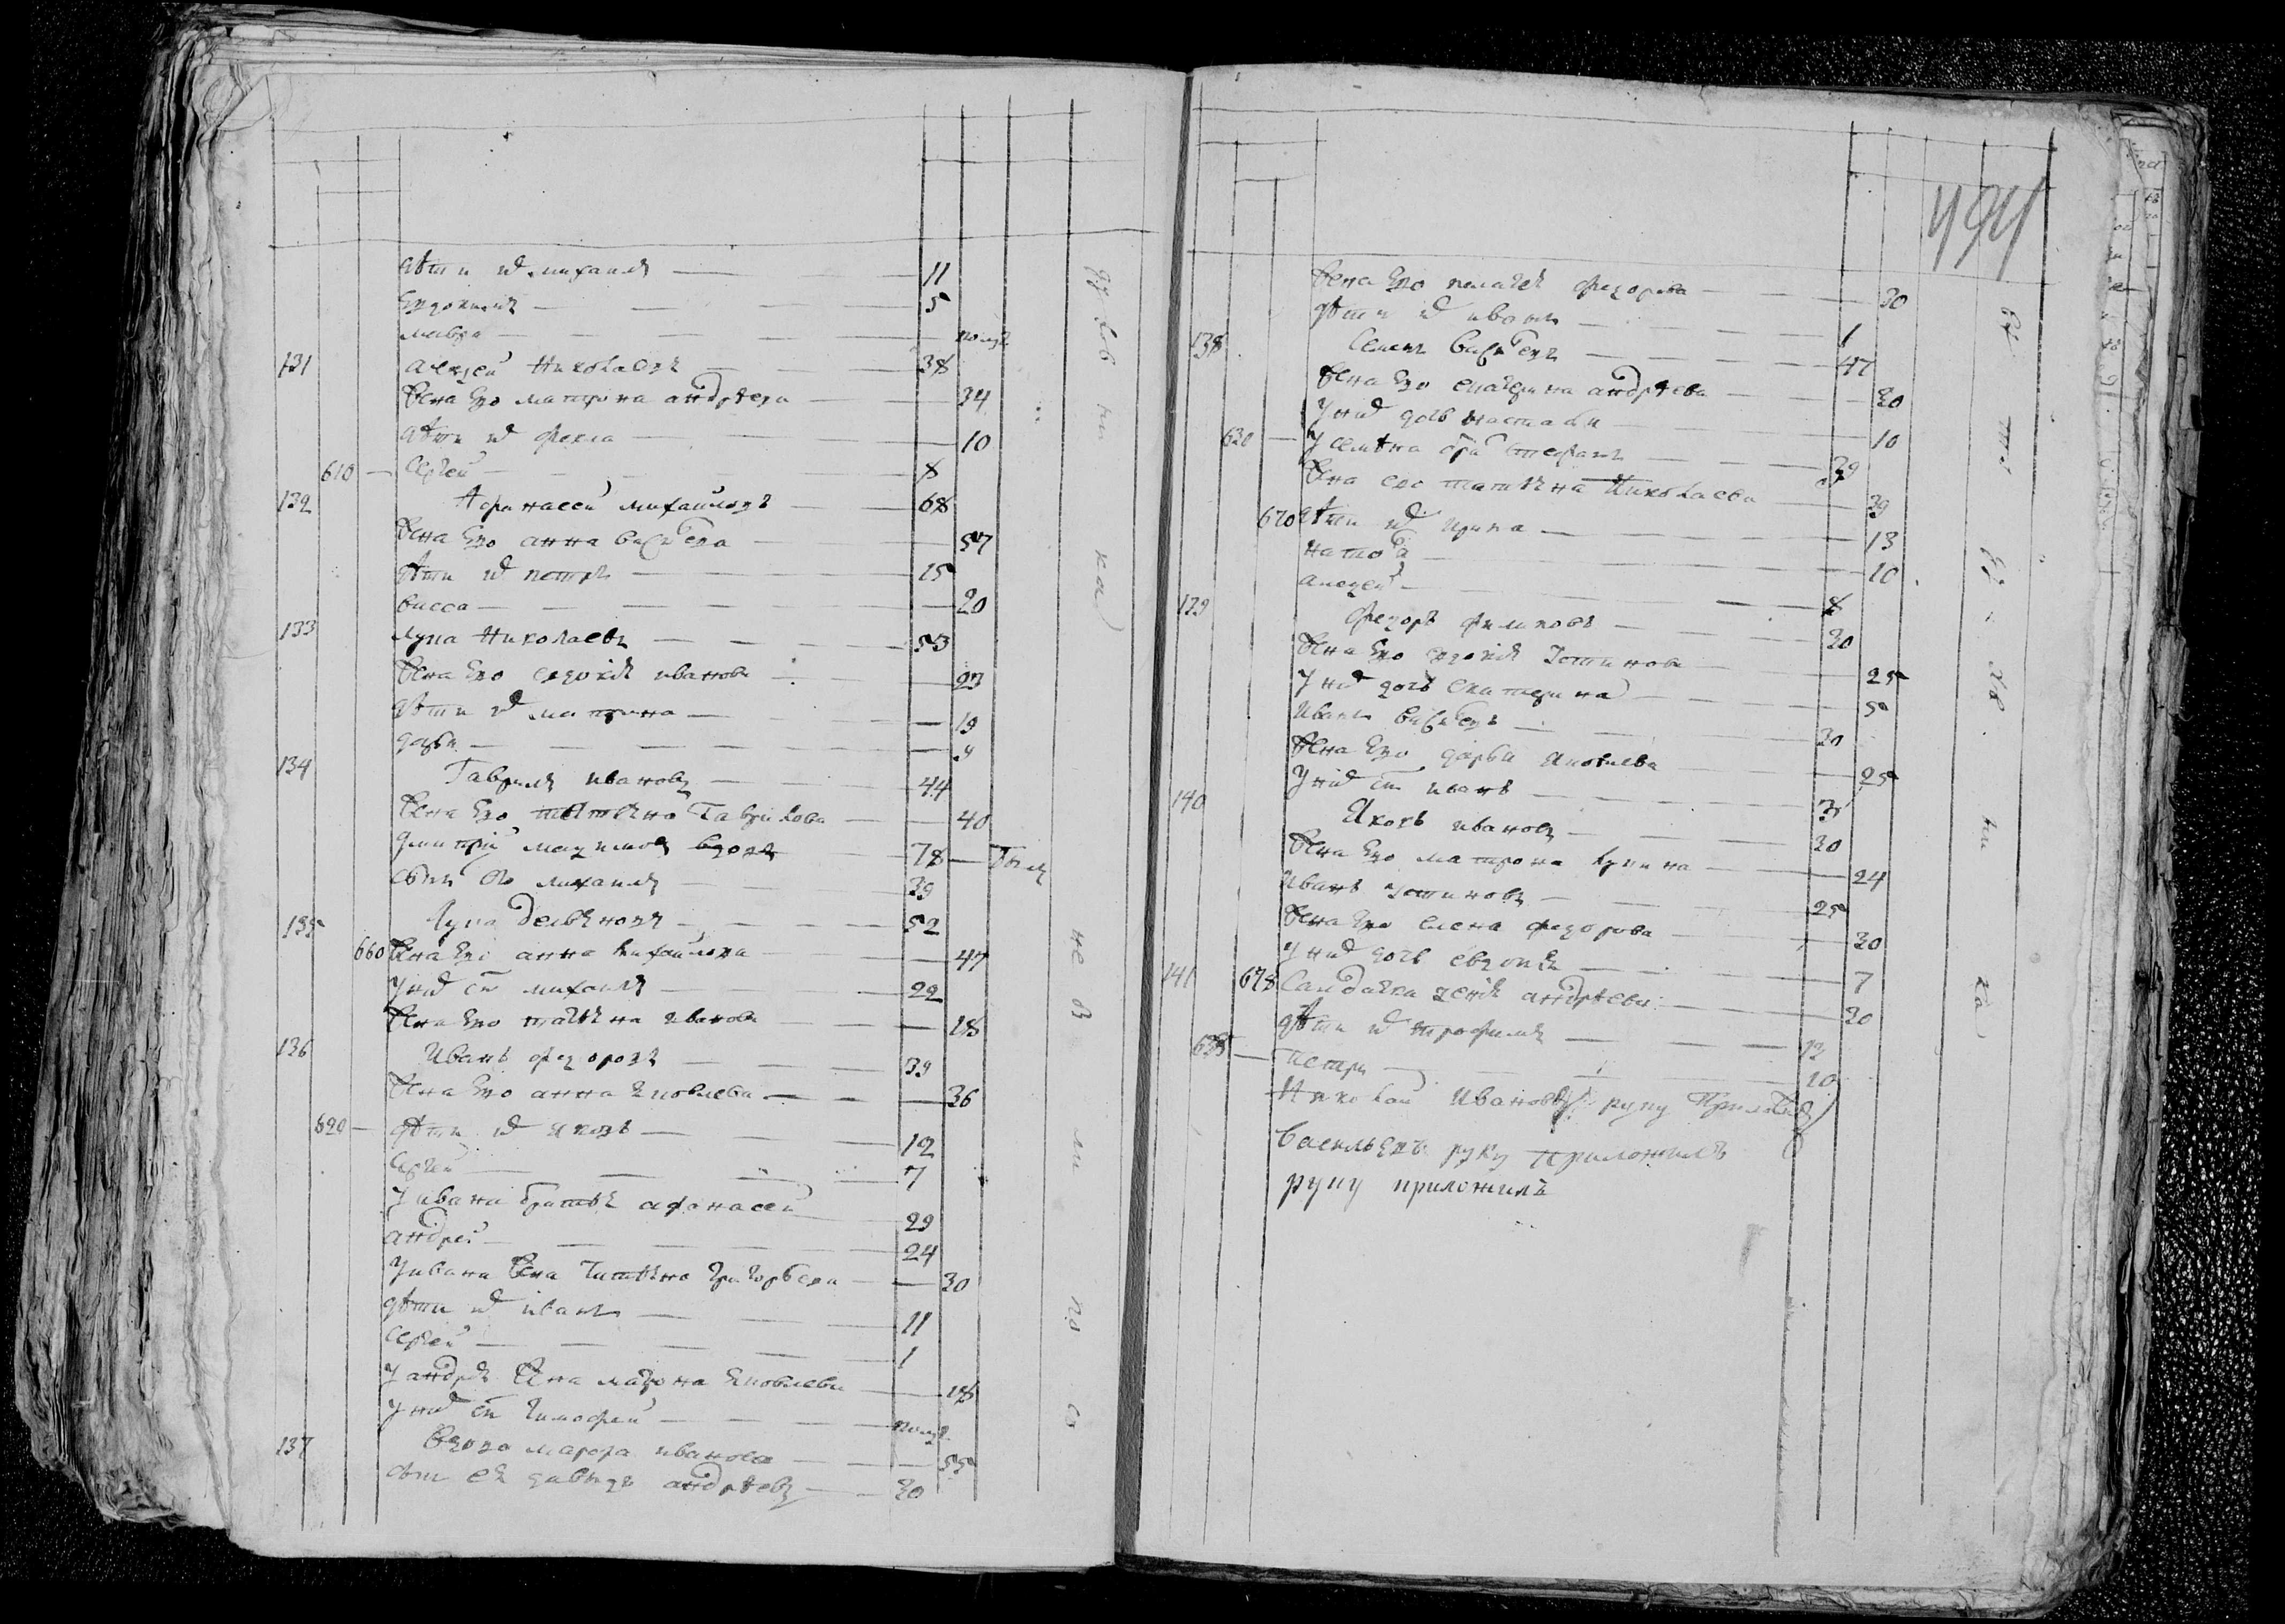 дѣти их михаилъ — 11
Евдокимъ — 5
мавра — полуг
131 алеѯеи Николаевъ — 38
жена ево матрона андрѣева — 34
дѣти их фекла — 10
610 — Сергеи — 8
132 Афанасеи михаиловъ — 68
жена ево анна василева — 57
дѣти их петръ — 15
васса — 20
133 лука Николаевъ — 53
жена ево евдокия иванова — 23
дѣти их матрона — 19
дарья — 9
134 Гаврила ивановъ — 44
жена ево татьяна Гаврилова — 40
дмитрий маѯимов вдовъ — 78
сынъ Ево михаила — 39
135 Лука — 52
660 жена ево анна михаилова — 47
у них сынъ михаила — 22
жена ево татьяна иванова — 18
136 Иванъ федоровъ — 39
жена ево анна яковлева — 36
620 — дѣти их яковъ — 12
Сергеи — 7
у ивана братья афонасеи — 29
андреи — 24
у ивана жена татьяна григорьева — 30
дѣти их иванъ — 11
Сергеи — 1
у андрея жена матрона яковлева — 18
у них сынъ тимофеи — полуг
137 вдова марфа иванова — 55
сынъ ея давыдъ андрѣевъ — 30
494
жена ево пелагея федорова — 30
дѣти их иванъ — 1
138 Семенъ василевъ — 47
жена ево екатерина андрѣева — 30
у них дочь настасья — 10
630 — у семѣна братъ стефанъ — 39
жена ево татьяна Николаева — 39
670 дѣти их ирина — 13
наталья — 10
алеѯеи — 8
139 федоръ филиповъ — 30
жена ево евдокия устинова — 25
у них дочь екатерина — 5
иванъ василевъ — 30
жена ево дарья яковлева — 25
у них сынъ иванъ — 3
140 Яковъ ивановъ — 30
жена ево матрона лукина — 24
иванъ устиновъ — 25
жена ево елена федорова — 30
у них дочь евдокия — 7
141 678 Салдатка андрѣева — 30
дѣти их трофимъ — 12
635 — петръ — 10
Николаи Ивановъ руку приложилъ
васильевъ руку приложилъ
руку приложилъ